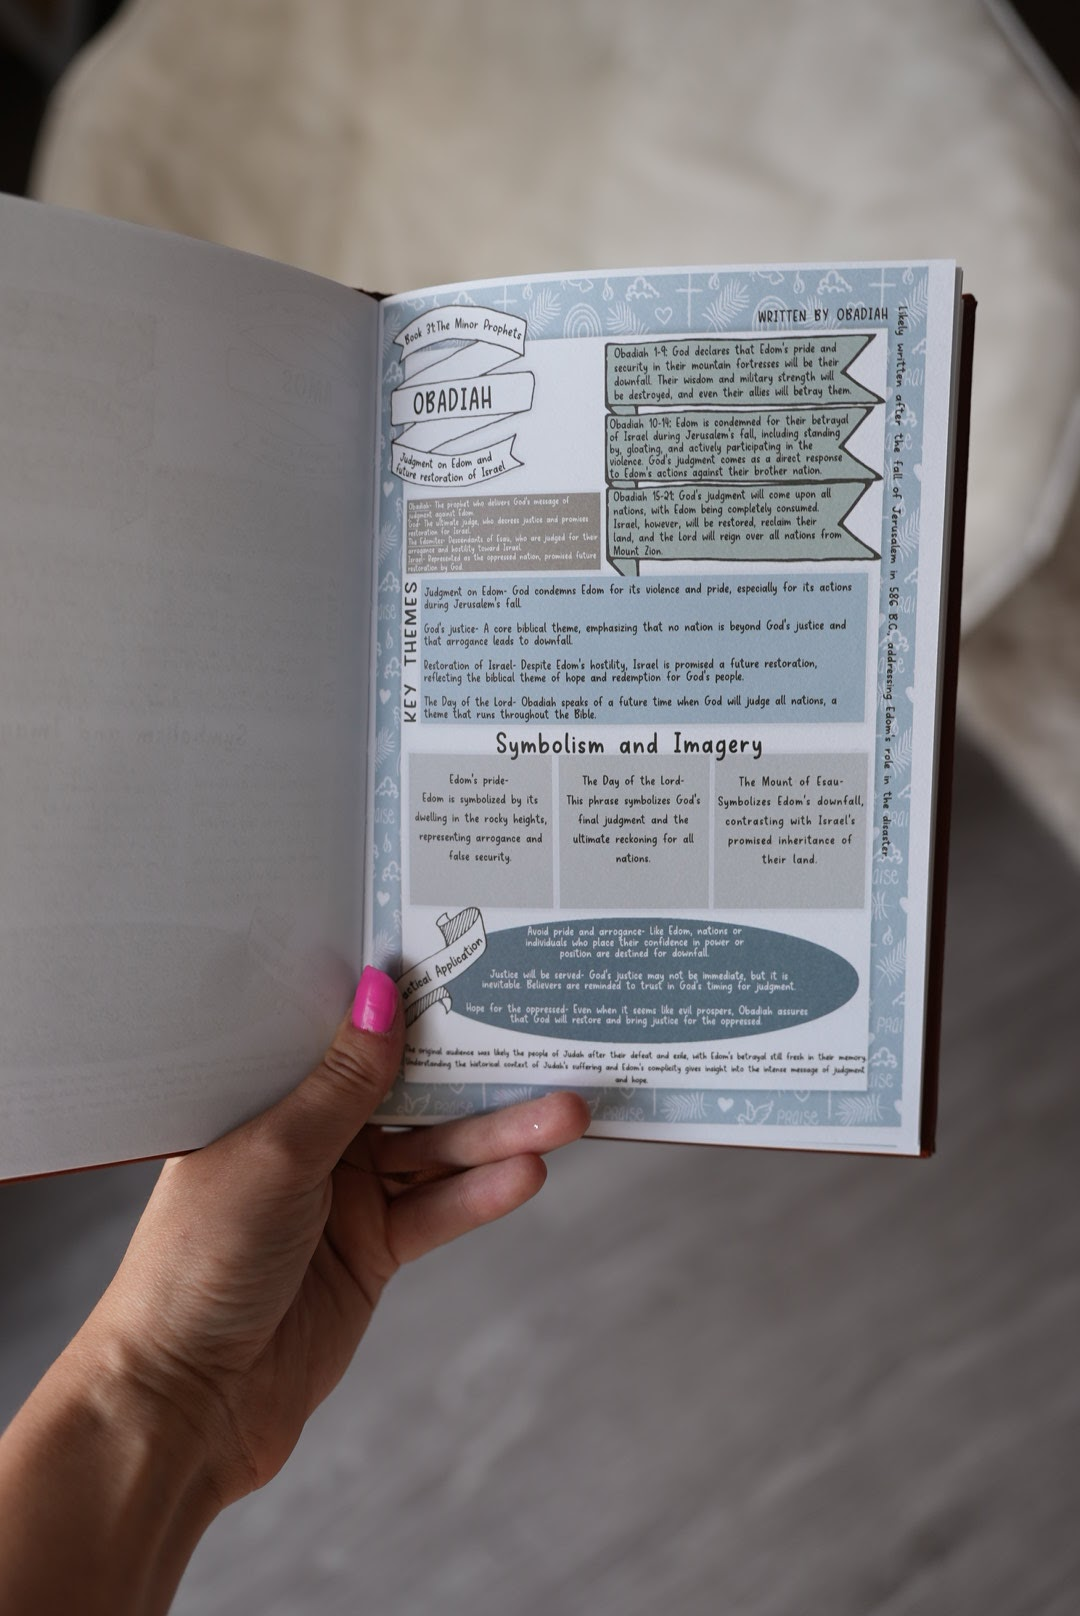 Book 31:The Minor Prophets
OBADIAH
Judgment on Edom and
future restoration of Israel
WRITTEN BY OBADIAH
Likely written after the fall of Jerusalem in 586 B.C., addressing Edom's role in the disaster
Obadiah 1-9: God declares that Edom's pride and
security in their mountain fortresses will be their
downfall. Their wisdom and military strength will
be destroyed, and even their allies will betray them.
Obadiah 10-14: Edom is condemned for their betrayal
of Israel during Jerusalem's fall, including standing
by, gloating, and actively participating in the
violence. God's judgment comes as a direct response
to Edom's actions against their brother nation.
Obadiah 15-21: God's judgment will come upon all
nations, with Edom being completely consumed.
Israel, however, will be restored, reclaim their
land, and the Lord will reign over all nations from
Mount Zion.
Obadiah- The prophet who delivers God's message of
judgment against Edom.
God- The ultimate judge, who desires justice and promises
restoration for Israel.
The Edomites- Descendants of Esau, who are judged for their
arrogance and hostility toward Israel.
Israel- Represented as the oppressed nation, promised future
restoration by God.
KEY THEMES
Judgment on Edom- God condemns Edom for its violence and pride, especially for its actions
during Jerusalem's fall.
God's justice- A core biblical theme, emphasizing that no nation is beyond God's justice and
that arrogance leads to downfall.
Restoration of Israel- Despite Edom's hostility, Israel is promised a future restoration,
reflecting the biblical theme of hope and redemption for God's people.
The Day of the Lord- Obadiah speaks of a future time when God will judge all nations, a
theme that runs throughout the Bible.
Symbolism and Imagery
Edom's pride-
Edom is symbolized by its
dwelling in the rocky heights,
representing arrogance and
false security.
The Day of the Lord-
This phrase symbolizes God's
final judgment and the
ultimate reckoning for all
nations.
The Mount of Esau-
Symbolizes Edom's downfall,
contrasting with Israel's
promised inheritance of
their land.
actical Application
Avoid pride and arrogance- Like Edom, nations or
individuals who place their confidence in power or
position are destined for downfall.
Justice will be served- God's justice may not be immediate, but it is
inevitable. Believers are reminded to trust in God's timing for judgment.
Hope for the oppressed- Even when it seems like evil prospers, Obadiah assures
that God will restore and bring justice for the oppressed.
The original audience was likely the people of Judah after their defeat and exile, with Edom's betrayal still fresh in their memory.
Understanding the historical context of Judah's suffering and Edom's complicity gives insight into the intense message of judgment
and hope.
PRAISE
PRAISE